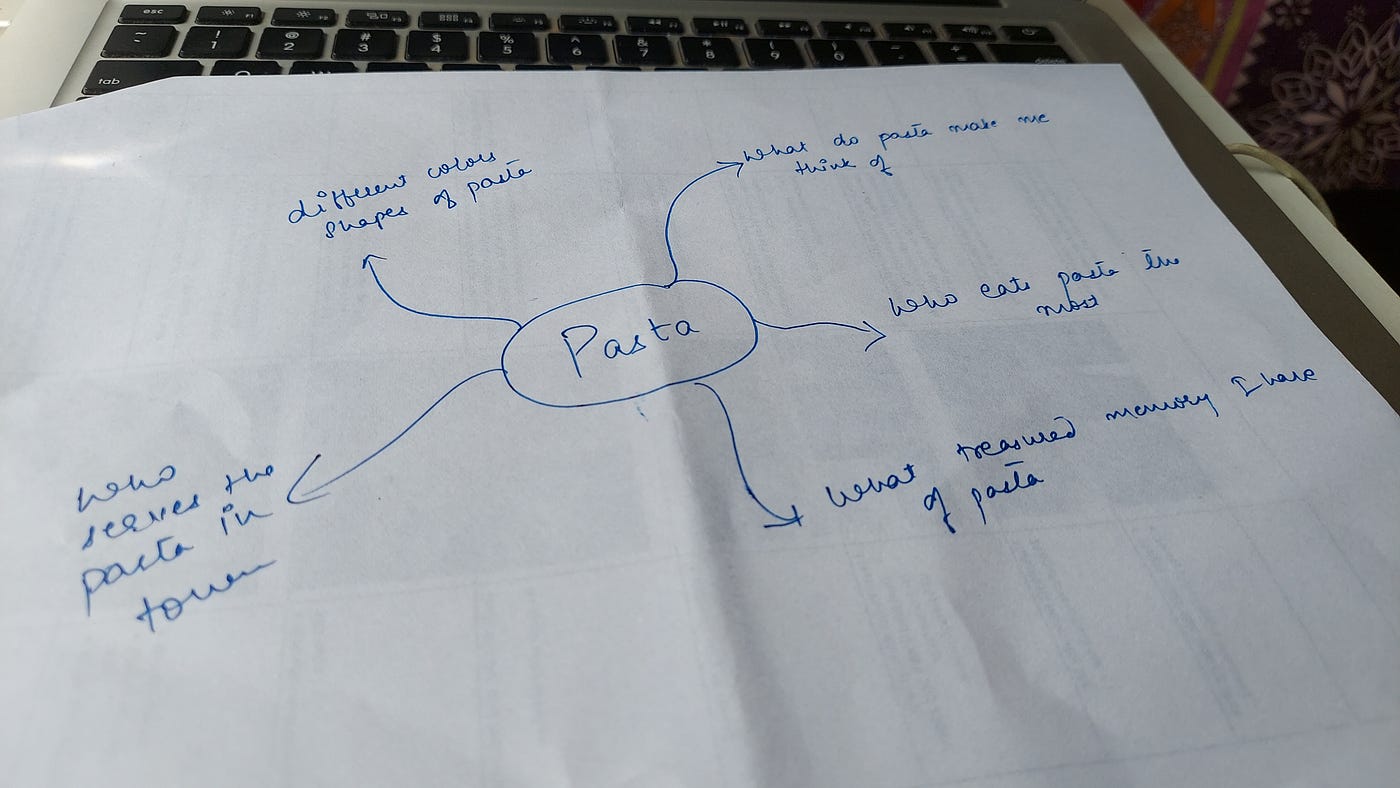 esc F1 F2 F3 F4 F5 F6 F7 F8 F9
~ ! @ # $ % ^ & * ( )
1 2 3 4 5 6 7 8 9 0
tab
different colors
shapes of pasta
What do pasta make me
think of
Pasta
who eats pasta the
most
What treasured memory I have
of pasta
who
serves the
pasta in
town